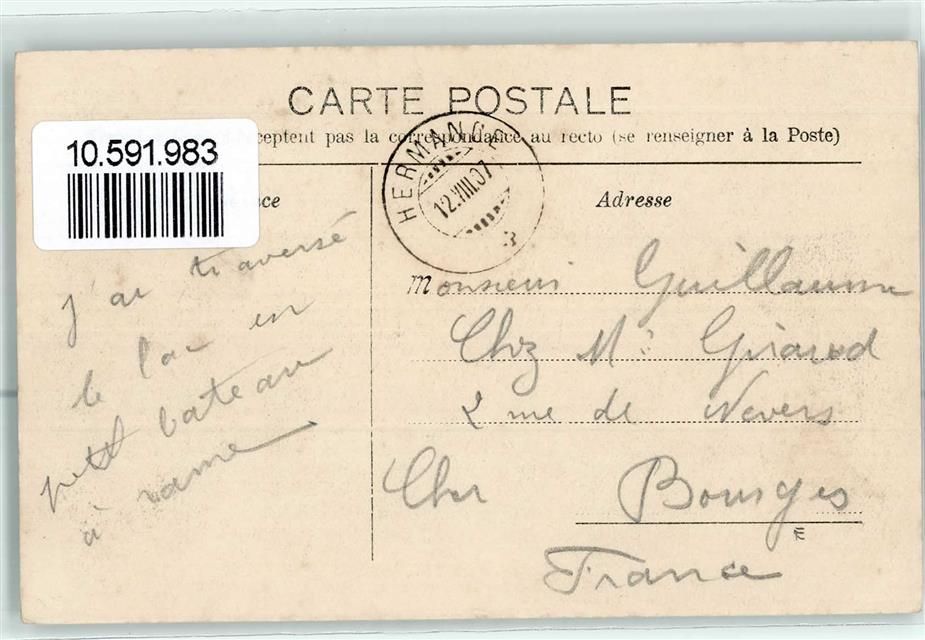 CARTE POSTALE
ceptent pas la correspondance au recto (se renseigner à la Poste)
10.591.983
HERMANCE
12.VIII.07
Adresse
j'ai traversé
le lac en
petit bateau
à rame
Monsieur Guillaume
Chez Mr Girarod
2 rue de Nevers
Cher Bourges
France